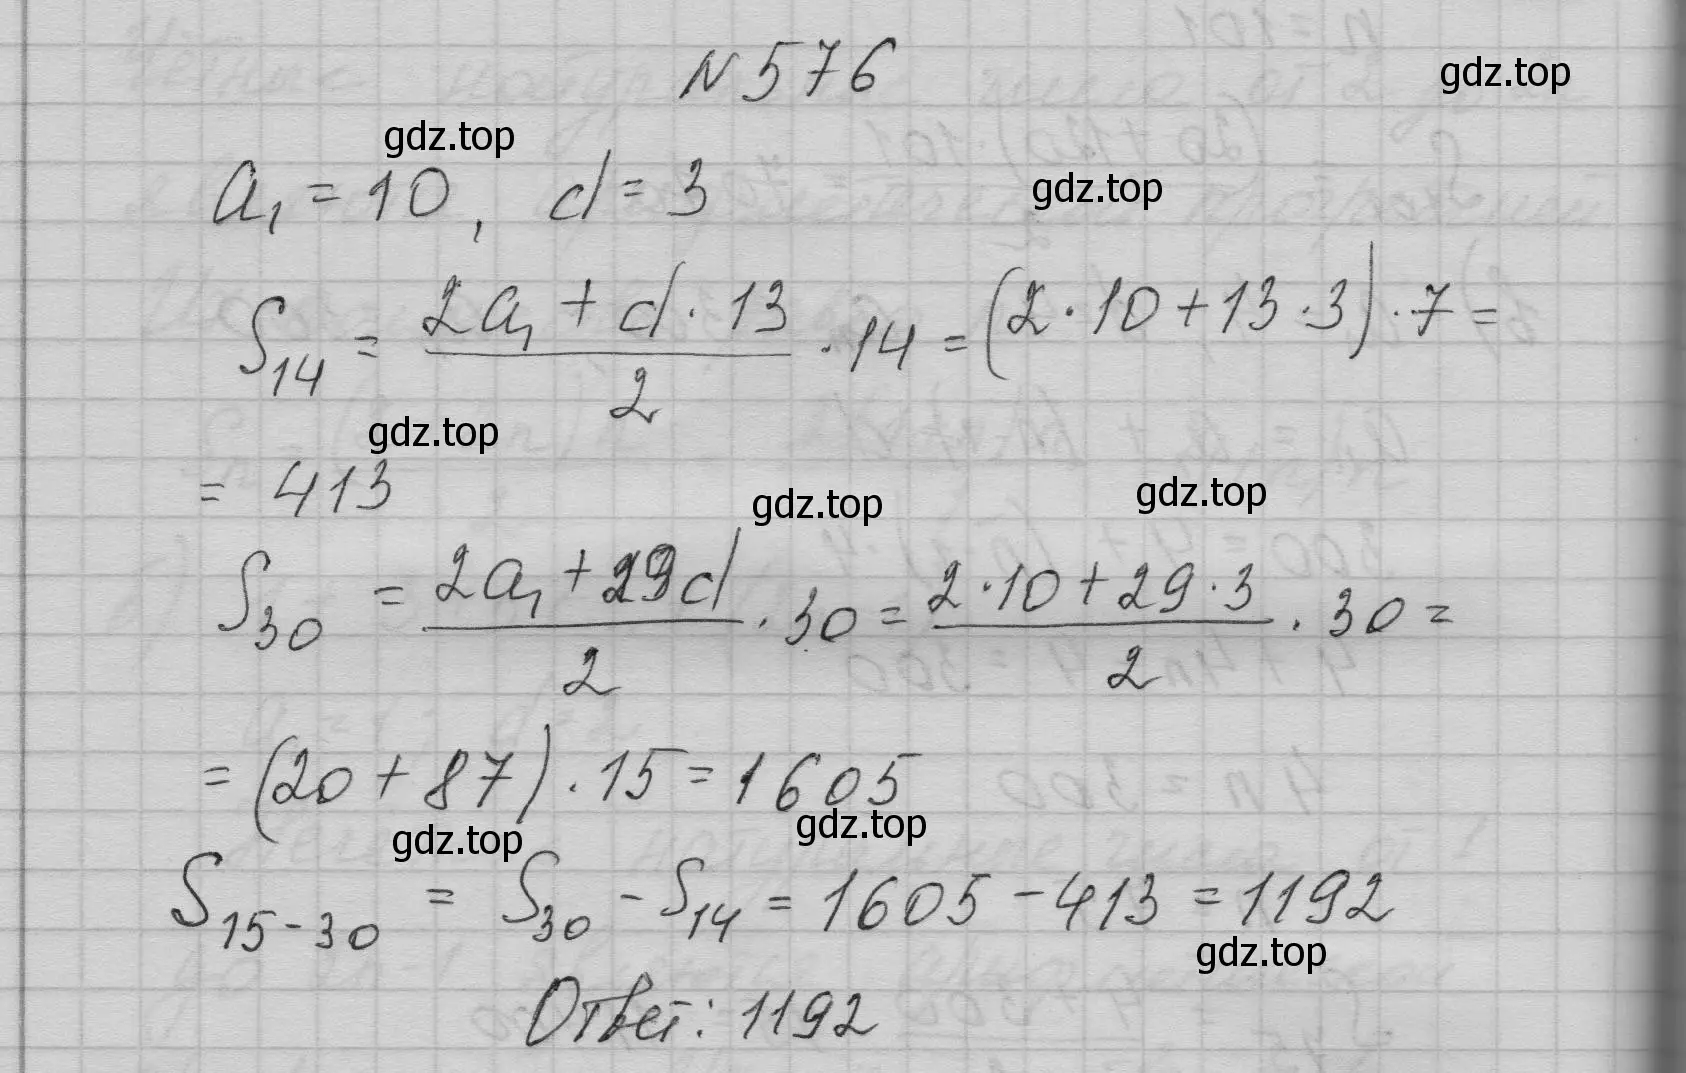 N 576
gdz.top
gdz.top
a₁ = 10, d = 3
gdz.top
S₁₄ = (2a₁ + d · 13)/2 · 14 = (2 · 10 + 13 · 3) · 7 =
gdz.top
= 413
gdz.top
gdz.top
S₃₀ = (2a₁ + 29d)/2 · 30 = (2 · 10 + 29 · 3)/2 · 30 =
= (20 + 87) · 15 = 1605
gdz.top
gdz.top
S₁₅₋₃₀ = S₃₀ - S₁₄ = 1605 - 413 = 1192
gdz.top
Ответ: 1192